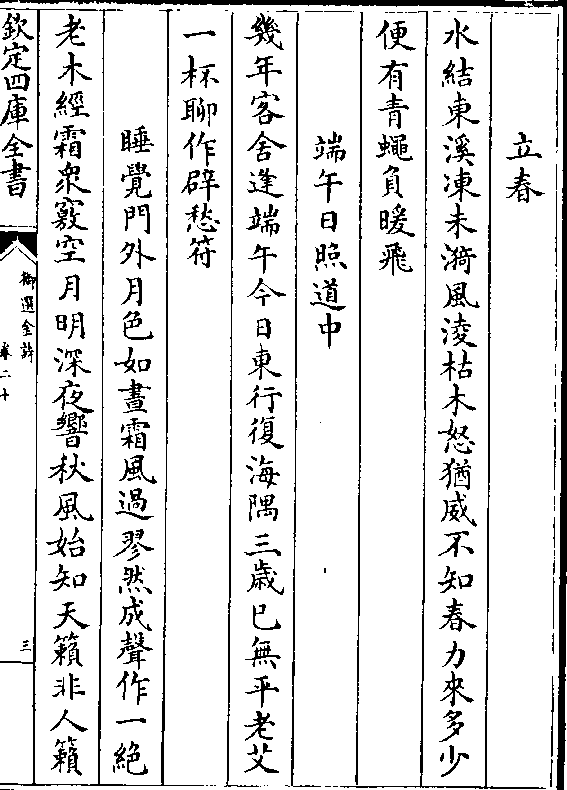 立春
水結東溪凍未漪風淩枯木怒猶威不知春力來多少
便有青蠅負暖飛
端午日照道中
幾年客舍逢端午今日東行復海隅三歲已無平老艾
一杯聊作辟愁符
睡覺門外月色如晝霜風過翏然成聲作一絶
老木經霜衆竅空月明深夜響秋風始知天籟非人籟
欽定四庫全書
御選金詩
卷二十
三